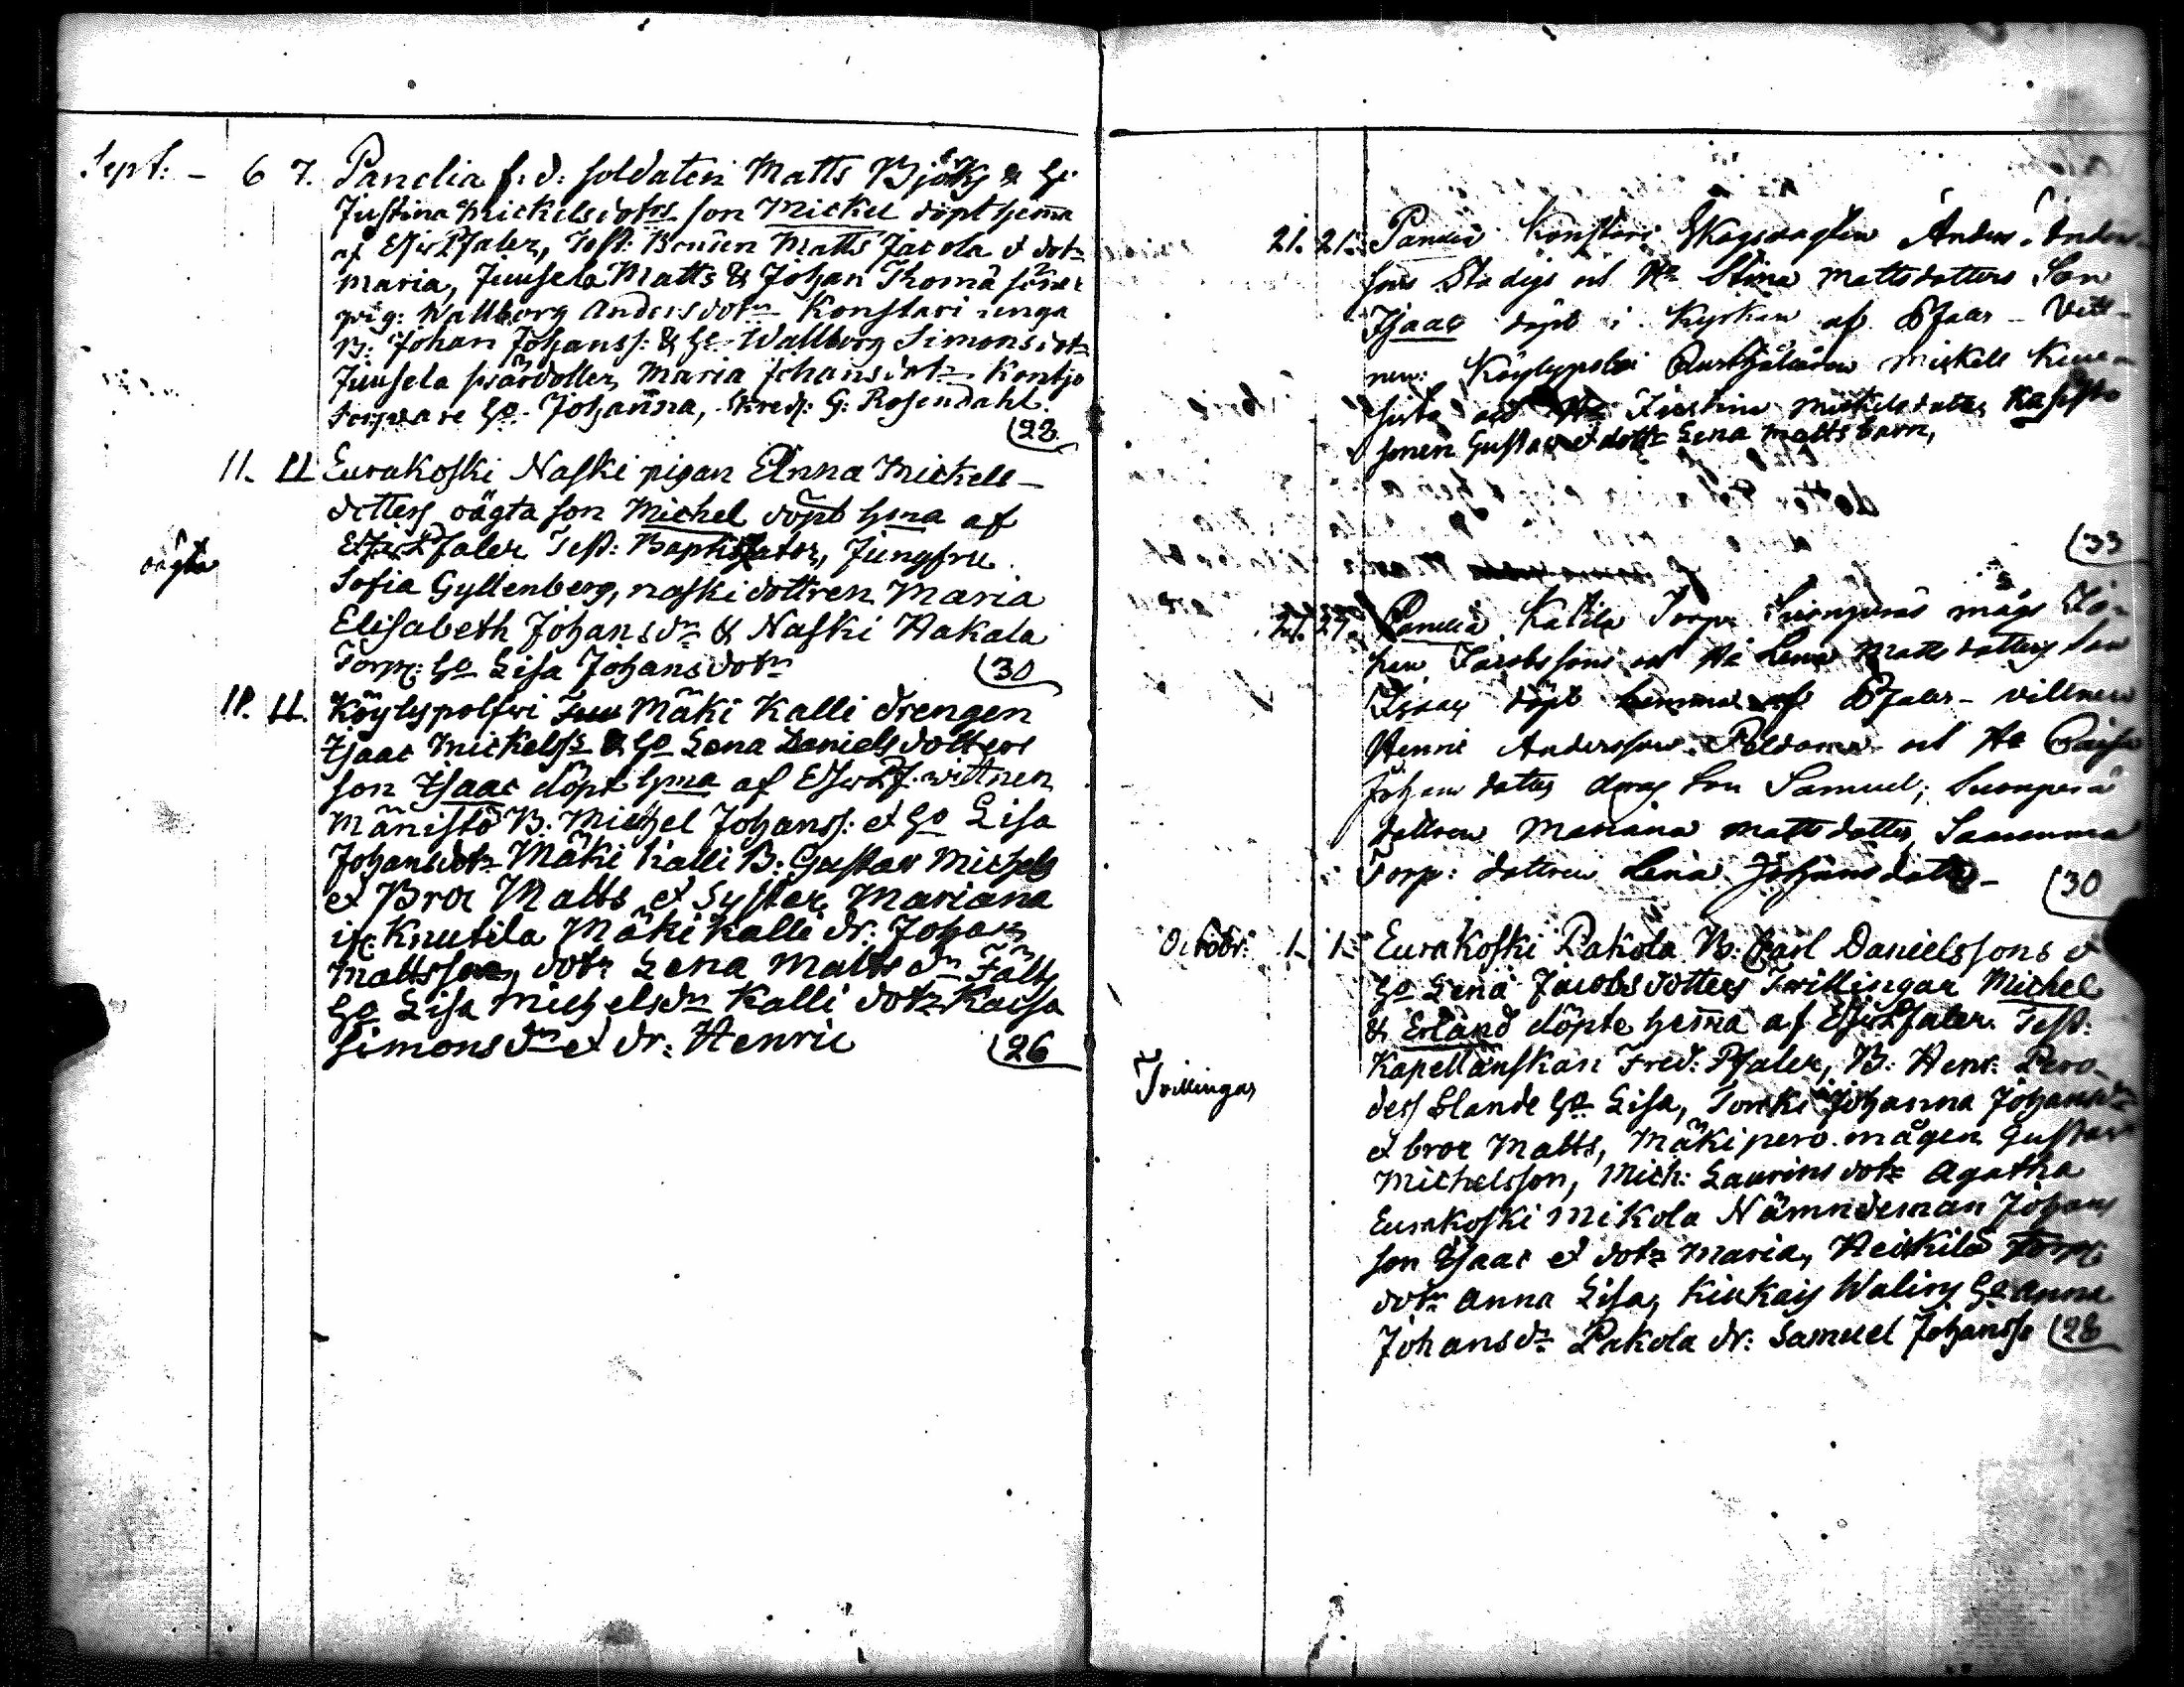 Sept: - 6 7. Panelia f: d: soldaten Matts Björks & H:
Justina Mickelsdotrs son Mickel döpt hema
af Pfaler, Test: Bonden Matts Jacola & dotr
Maria, Juusela Matts & Johan Thomæ söner
pig: Wallborg Andersdotr Konstari unga
B: Johan Johanss: & Ho Wallborg Simonsdotr
Juusela Maria Johansdotr Kontjo
Torpare Ho Johanna, Skredd: G: Rosendahl.
(28
11. 11 Eurakoski Naski pigan Anna Mickels-
dotters oägta son Michel döpt hma af
Pfaler Test: Baptisator, Jungfru
oägta
Sofia Gyllenberg, naski dottren Maria
Elisabeth Johansdr & Naski Hakala
Torp: Ho Lisa Johansdotr (30
11. Köylypolfvi Mäki Kalli drengen
Isaac Mickelss & Ho Lena Daniels dotters
son Isaac döpt hma af wittnen
Mänistö B: Michel Johanss: et Ho Lisa
Johansdotr Mäki Kalli B: Gustav Michels
et Bror Matts et Syster Mariana
Knutila Mäki Kalli dr: Johan
Mattsson, dotr Lena Matts dr Fält
Ho Lisa Michelsdr Kalli dotr Kaisa
Simons dr et dr: Henric (26
21. 21. Konstari Skogvagten Anders Anders-
sons Stadigs och Ha Stina Mattsdotters Son
Isaac döpt i Kyrkan af Pfaler - Vitt-
nen: Köylypolvi Mickell
och Justina Mickelsdotter
sonen Gustav et dottr Lena Matts barn,
(33
27. Panelia Katila Torp: mågs Jo-
han Jacobssons och Ha Lena Matts dotters Son
Isaac döpt hemma af Pfaler - vittnen
Henric Anderssons och Ha Caisa
Johans dotter deras Son Samuel;
dottren Mariana Matts dotter,
Torp: dottren Lena Johans dotter - (30
Octobr: 1. 1. Eurakoski Pakola B: Carl Danielssons et
Ho Lena Jacobsdotters Twillingar Michel
& Erland döpte hema af Pfaler. Test:
Kapellanskan Fred: Pfaler, B: Henr: Pero
Twillingar
Ho Lisa, Torki Johanna Johansdr
et bror Matts, Mäkipero mågen Gustav
Michelsson, Mich: Laurins dotr Agatha
Eurakoski Mikola Nämndeman Johans
son Isaac et dotr Maria, Heikilä Torp:
dotr Anna Lisa, Kiukais Ho Anna
Johansdr Pakola dr: Samuel Johanss (28